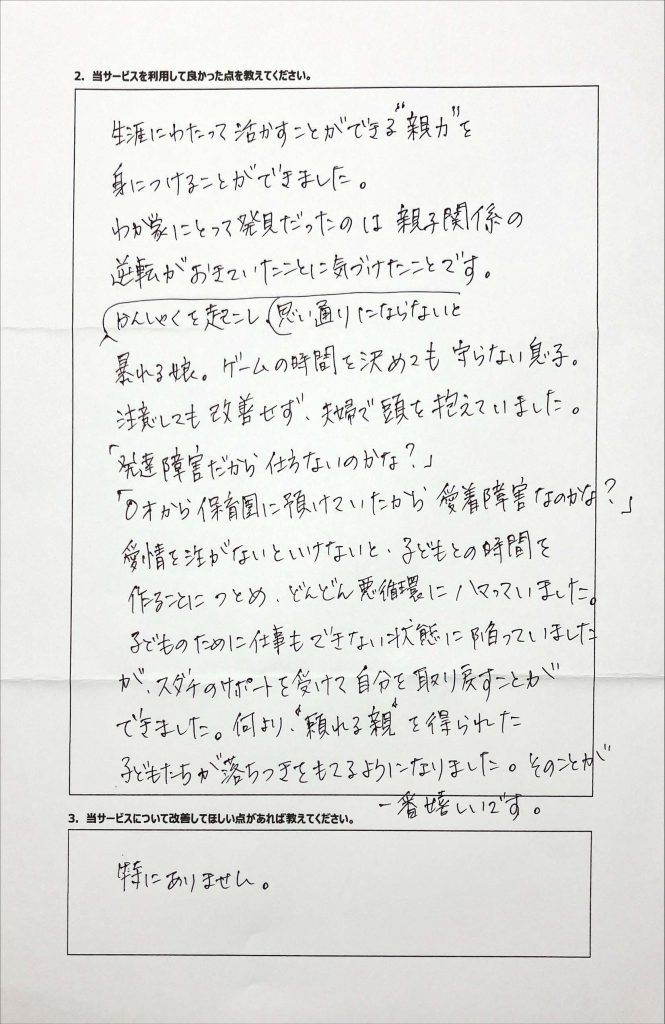 2. 当サービスを利用して良かった点を教えてください。
生涯にわたって活かすことができる“親力”を
身につけることができました。
わが家にとって発見だったのは親子関係の
逆転がおきていたことに気づけたことです。
かんしゃくを起こし、思い通りにならないと
暴れる娘。ゲームの時間を決めても守らない息子。
注意しても改善せず、夫婦で頭を抱えていました。
「発達障害だから仕方ないのかな?」
「0才から保育園に預けていたから愛着障害なのかな?」
愛情を注がないといけないと、子どもとの時間を
作ることにつとめ、どんどん悪循環にハマっていました。
子どものために仕事もできない状態に陥っていました
が、スダチのサポートを受けて自分を取り戻すことが
できました。何より、“頼れる親”を得られた
子どもたちが落ちつきをもてるようになりました。そのことが
一番嬉しいです。
3. 当サービスについて改善してほしい点があれば教えてください。
特にありません。